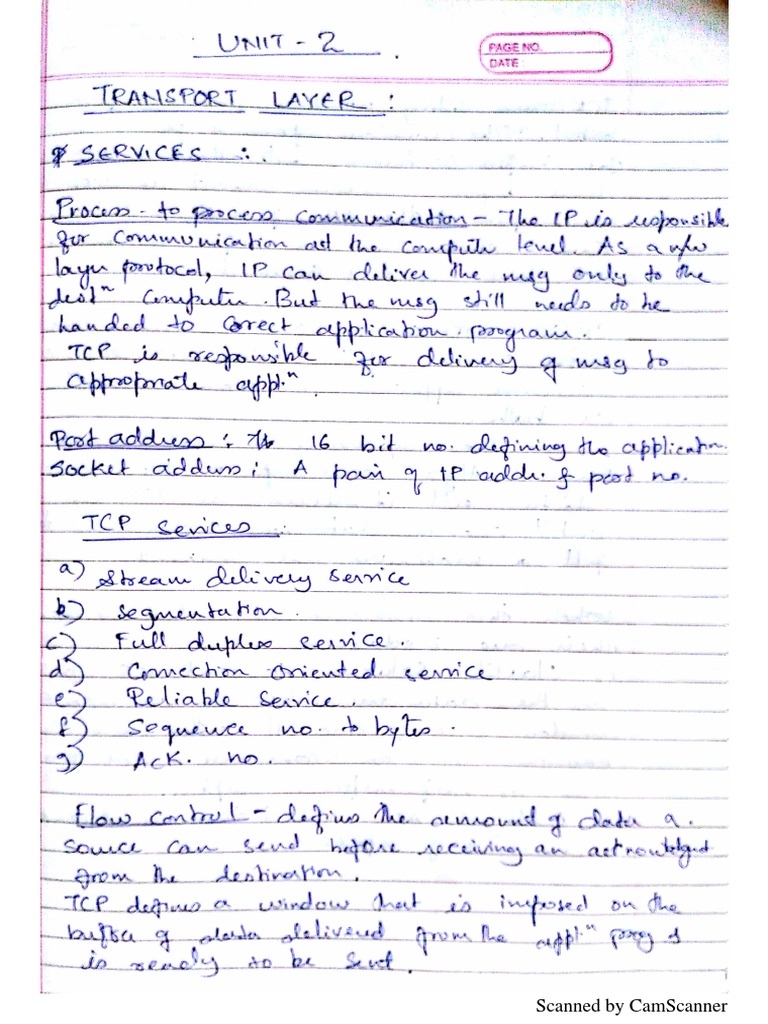 UNIT - 2
PAGE NO.
DATE
TRANSPORT LAYER :
SERVICES :
Process - to process communication - The IP is responsible
for communication at the compute level. As a n/w
layer protocol, IP can deliver the msg only to the
destⁿ computer. But the msg still needs to be
handed to correct application program.
TCP is responsible for delivery of msg to
appropriate applⁿ.
Port address : 16 bit no. defining the application.
Socket address : A pair of IP addr. & port no.
TCP Sevices :
a) Stream delivery service
b) Segmentation.
c) Full duplex service.
d) Connection oriented service.
e) Reliable Service.
f) Sequence no. to bytes.
g) Ack. no.
Flow control - defines the amount of data a
source can send before receiving an acknowledged
from the destination.
TCP defines a window that is imposed on the
buffer of data delivered from the applⁿ prog &
is ready to be sent.
Scanned by CamScanner